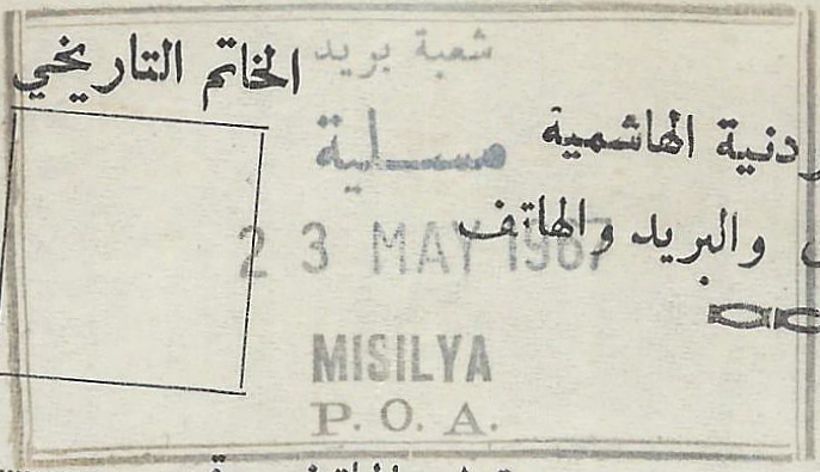 شعبة بريد
الخاتم التاريخي
مسلية
ردنية الهاشمية
والبريد والهاتف
23 MAY 1967
MISILYA
P. O. A.